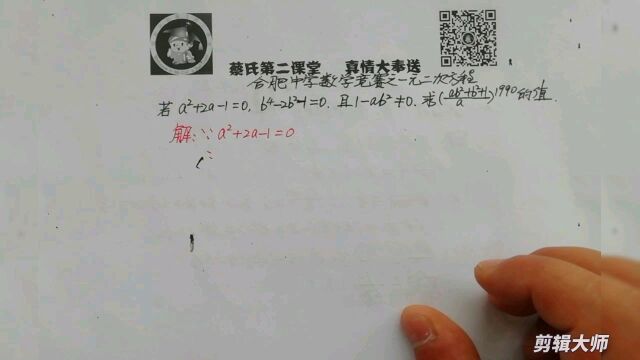 蔡氏第二课堂 真情大奉送
合肥中学数学竞赛之一元二次方程
若 a²+2a-1=0, b⁴-2b²-1=0, 且1-ab²≠0, 求(\frac{ab²+b²+1}{a})¹⁹⁹⁰的值.
解:∵a²+2a-1=0
∴
剪辑大师